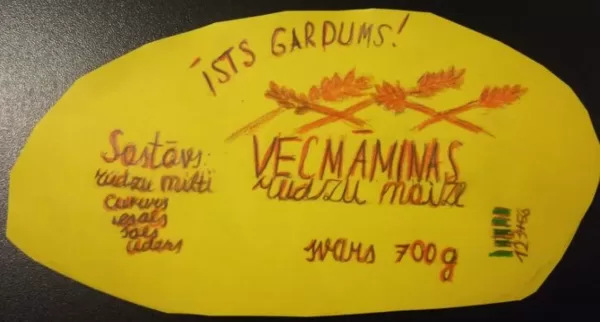 ĪSTS GARDUMS!
VECMĀMIŅAS
rudzu maize
Sastāvs:
rudzu milti
cukurs
iesals
sāls
ūdens
svars 700g